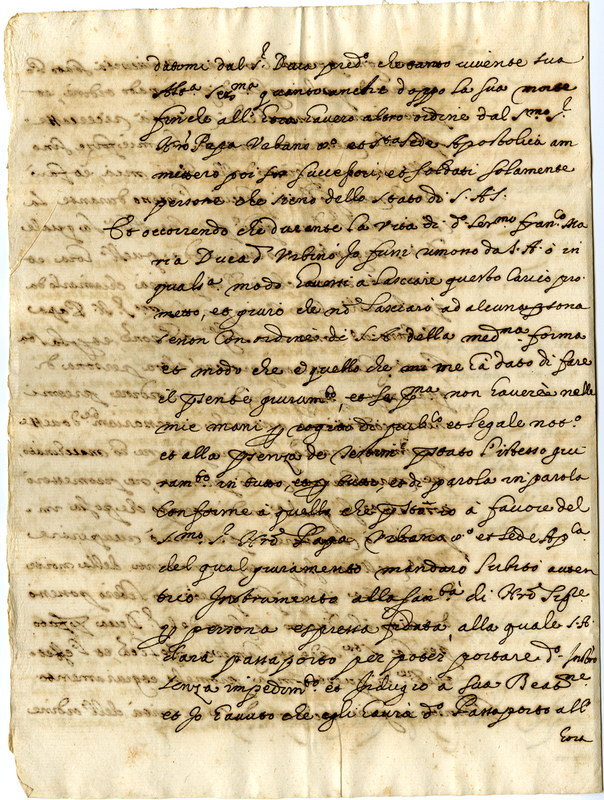 datomi dal S.r Duca pred.o che tanto vivente sua
Alt.a Ser.ma quanto anche doppo la sua morte
finche all'hora havero altro ordine dal S.mo S.r
N'ro Papa Urbano 8.o et S.ta Sede Apostolica am
mittero poi per successori, et soldati solamente
persone che sieno dello stato di S. A. S.
Et occorrendo che durante la vita di d.o Ser.mo Fran.co Ma
ria Duca d'Urbino Jo fussi rimosso da S. A. ò in
quals.a modo havessi à lasciare questo carico pro
metto, et giuro che nõ lasciarò ad alcuna p'sona
se non con ordine di S. A. della med.ma forma
et modo che è quello che mi hà dato di fare
il p'sente giuram.to, et se p.ma non haverà nelle
mie mani p rogito di pub.co et legale not.o
et alla p'senza de testim.i p'stato l'istesso giu
ram.to in tutto, et p tutto, et di parola in parola
conforme à quello che p'sto io à favore del
S.mo S.r N'ro Papa Urbano 8.o et Sede Ap.ca
del qual giuramento mandarò subito auten
tico Instrumento alla San.tà di N'ro Sig.re
p persona espressa fidata, alla quale S. A.
darà passaporto per poter portare d.o Instro
senza impedim.to et indugio à sua Beat.ne
et Jo havuto che egli havrà d.o Passaporto all'
hora